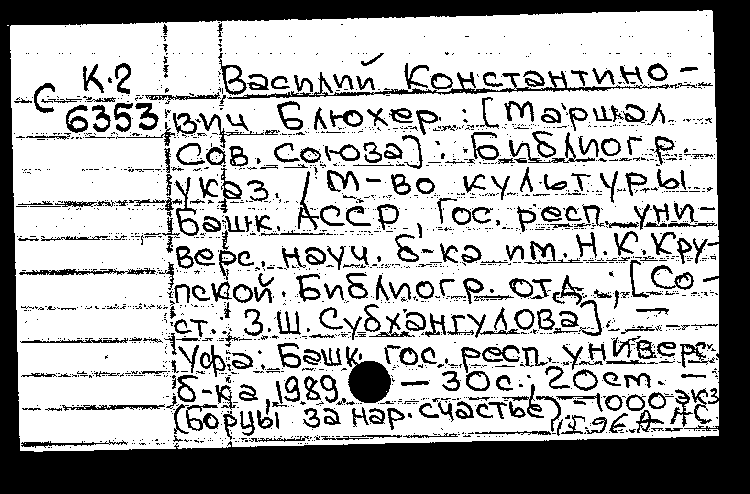 К.2
С 6353
Василий Константино-
вич Блюхер : [Маршал
Сов. Союза] : Библиогр.
указ. / М-во культуры
Башк. АССР, Гос. респ. уни-
верс. науч. б-ка им. Н.К. Кру-
пской. Библиогр. отд. ; [Со-
ст. З.Ш. Субхангулова]. —
Уфа: Башк. гос. респ. универс.
б-ка, 1989. — 30 с.; 20 см. —
(Борцы за нар. счастье). - 1000 экз